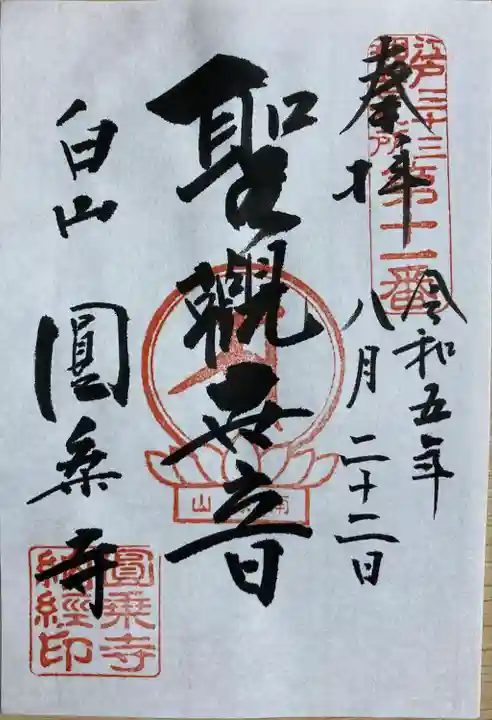 奉拝
江戸三十三
観音札所第十一番
令和五年
八月二十二日
聖観世音
山
白山 圓乗寺
圓乗寺
納経印